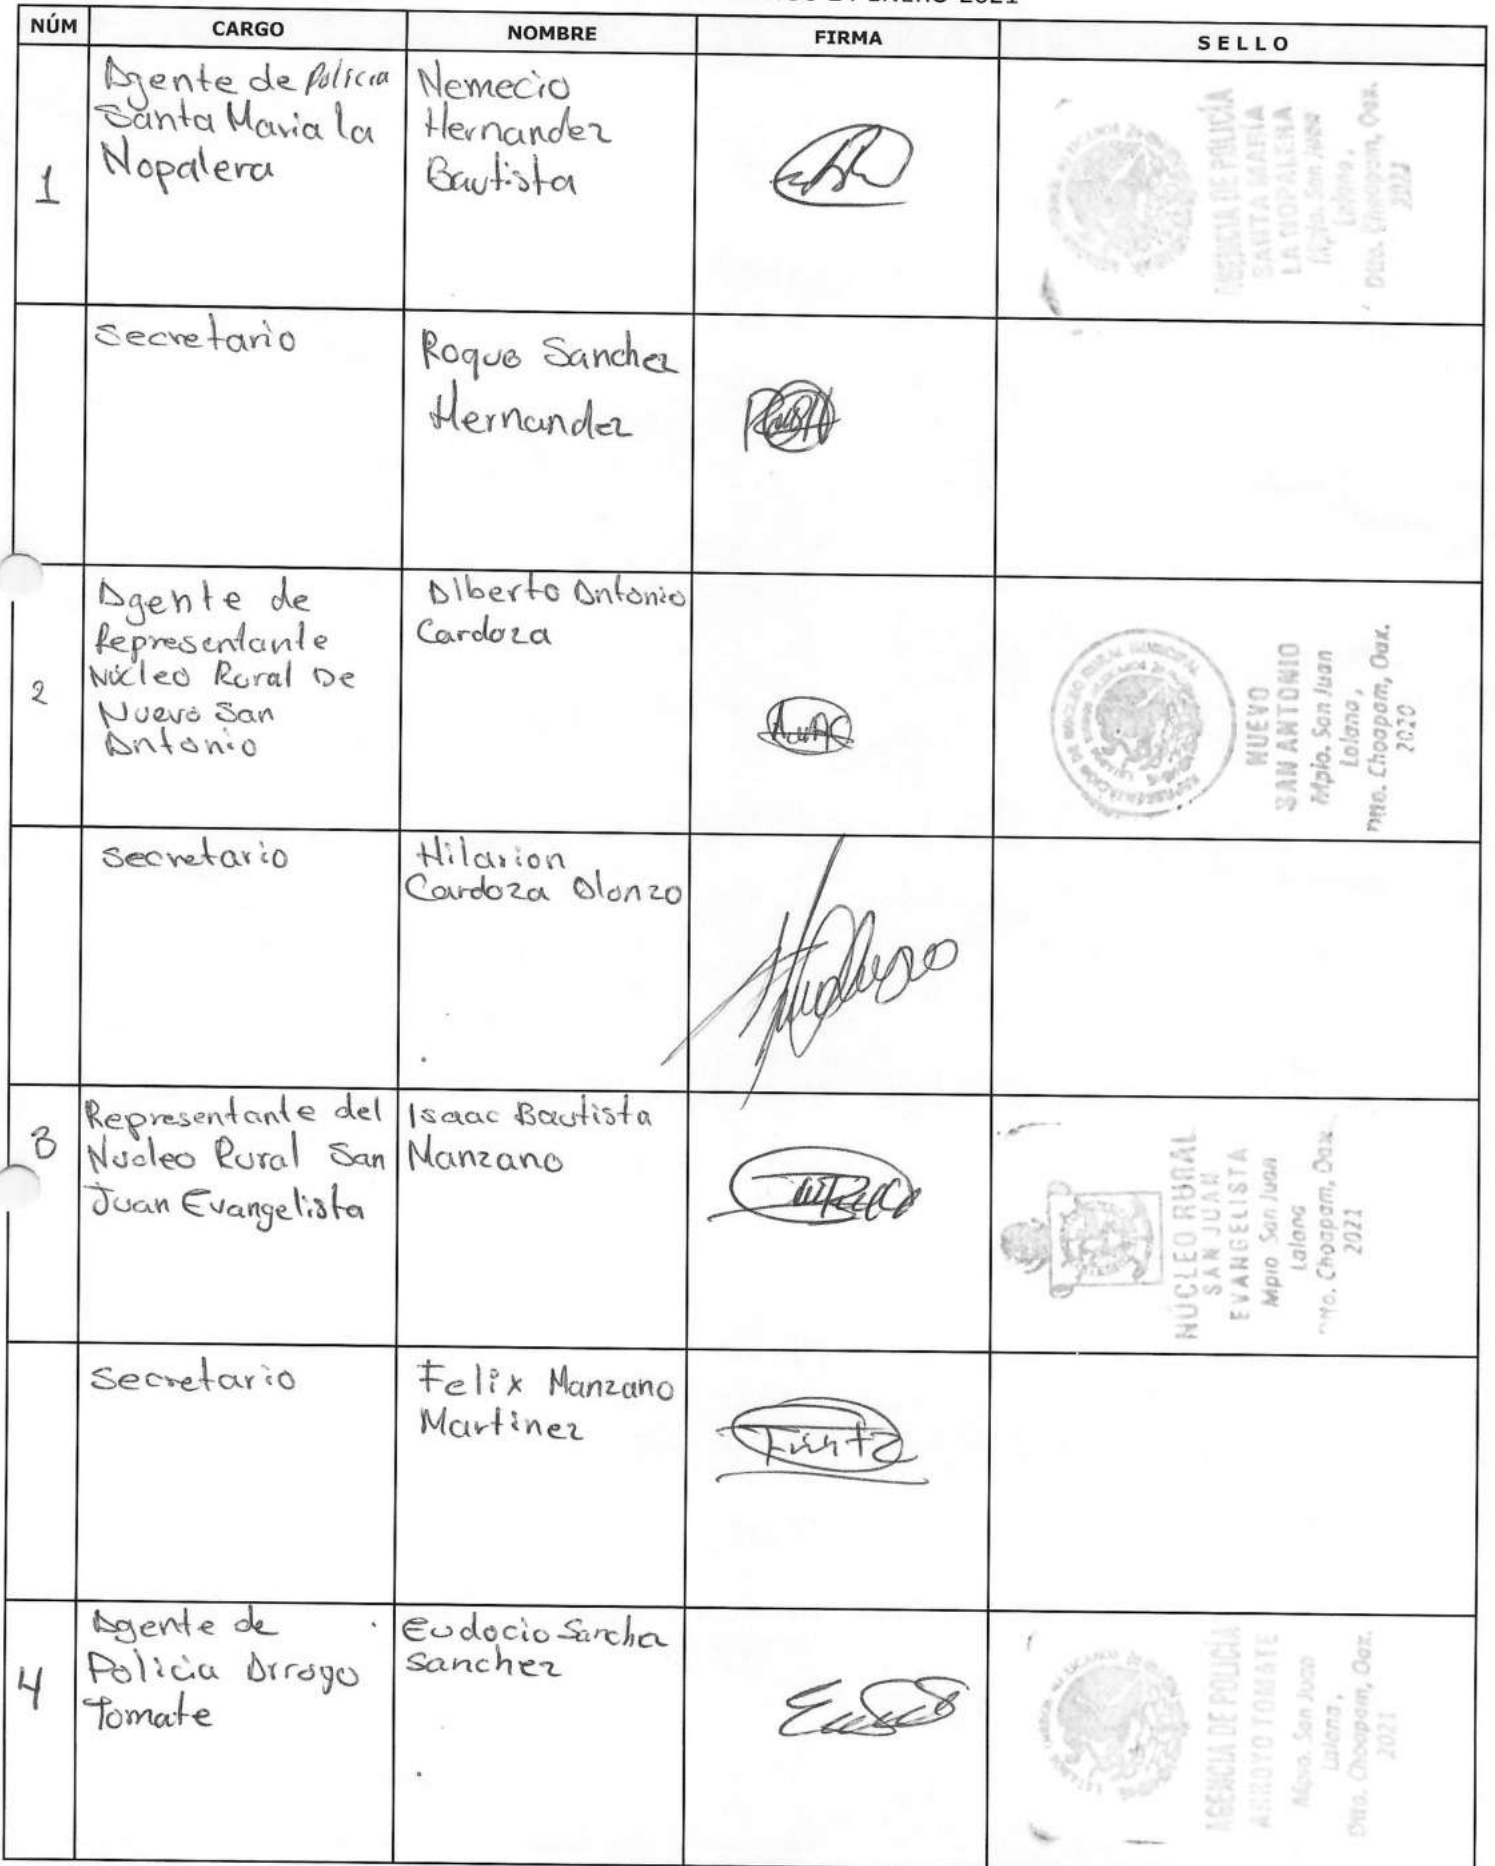 ENERO 2021
NÚM CARGO NOMBRE FIRMA SELLO
1
Agente de Policia
Santa Maria la
Nopalera
Nemecio
Hernandez
Bautista
AGENCIA DE POLICÍA
SANTA MARÍA
LA NOPALERA
Mpio. San Juan
Lalana,
Dtto. Choapam, Oax.
2021
Secretario
Roque Sanchez
Hernandez
2
Agente de
Representante
Núcleo Rural De
Nuevo San
Antonio
Alberto Antonio
Cardoza
REPRESENTACIÓN DE NUCLEO RURAL MUNICIPAL
NUEVO
SAN ANTONIO
Mpio. San Juan
Lalana,
Dtto. Choapam, Oax.
2020
Secretario
Hilarion
Cardoza Alonzo
3
Representante del
Nucleo Rural San
Juan Evangelista
Isaac Bautista
Manzano
NÚCLEO RURAL
SAN JUAN
EVANGELISTA
Mpio San Juan
Lalana
Dtto. Choapam, Oax.
2021
Secretario
Felix Manzano
Martinez
4
Agente de
Policia Arroyo
Tomate
Eudocio Sanchez
Sanchez
AGENCIA DE POLICÍA
ARROYO TOMATE
Mpio. San Juan
Lalana,
Dtto. Choapam, Oax.
2021